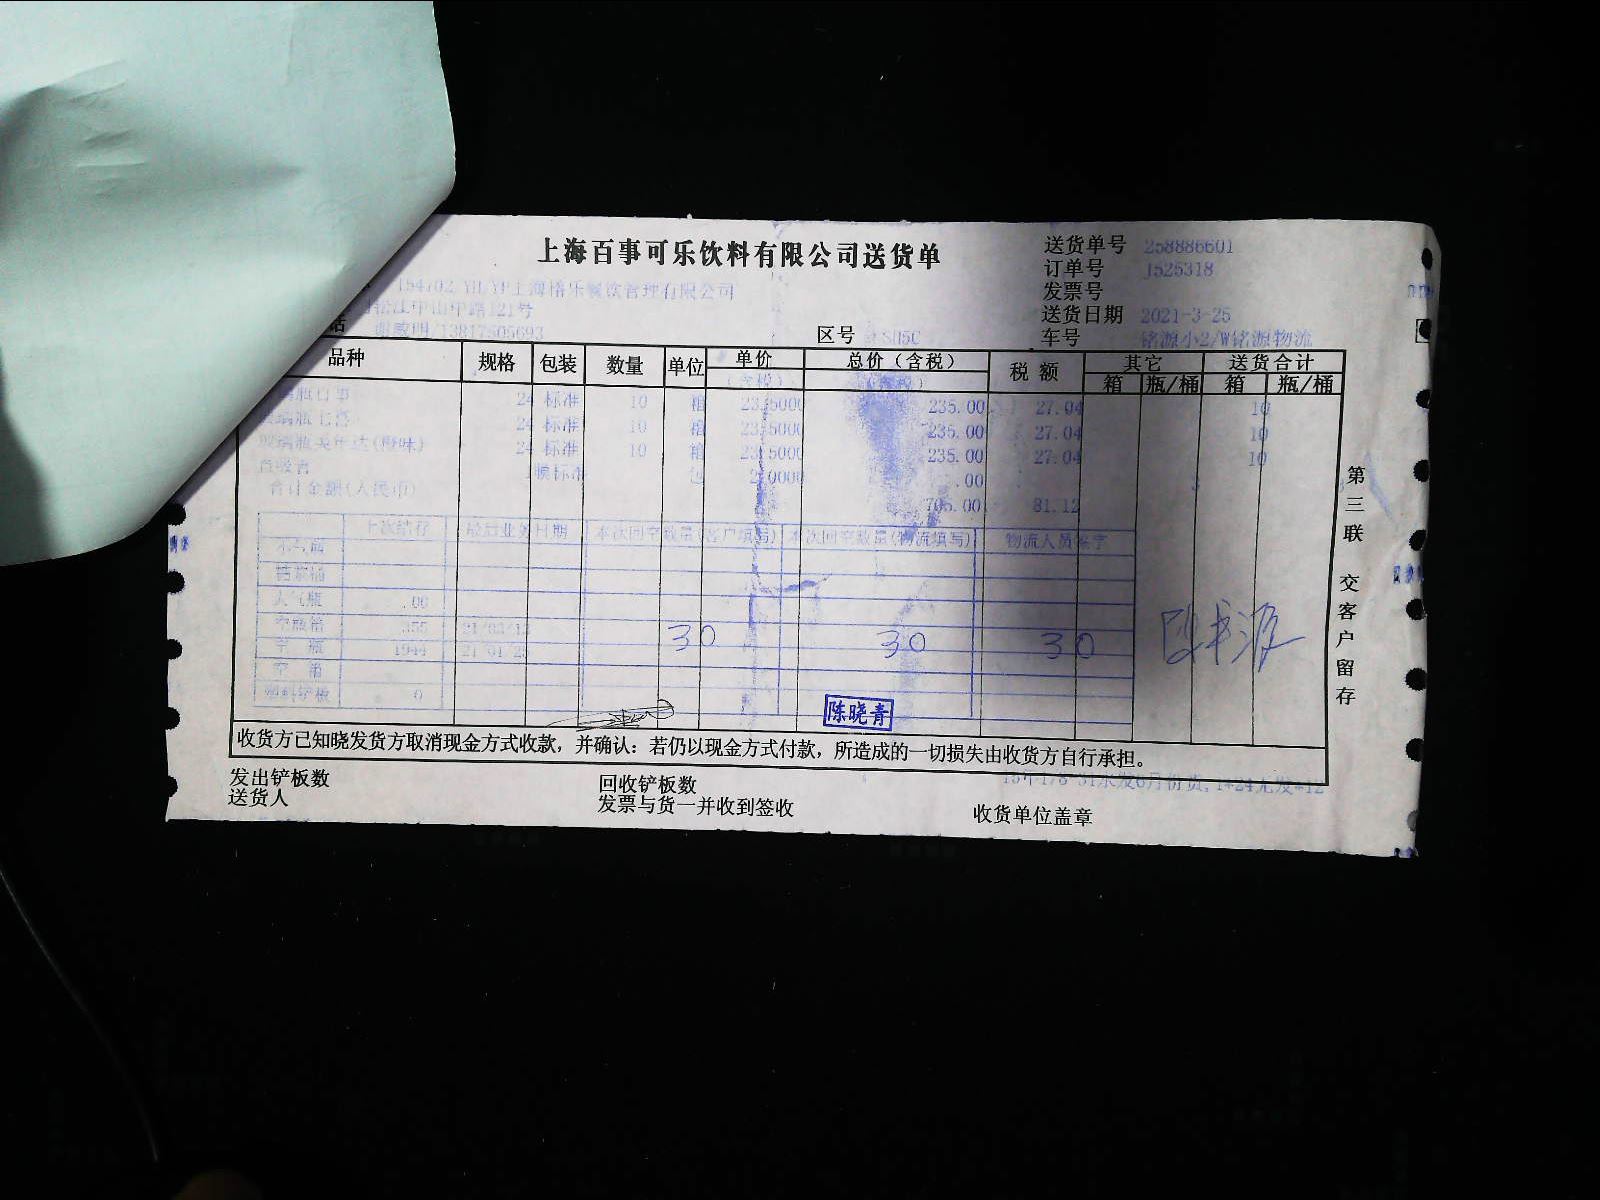 上海百事可乐饮料有限公司送货单
送货单号 258886601
订单号 1525318
发票号
送货日期 2021-3-25
车号 铭源小2/W铭源物流
餐饮管理有限公司
松江中山中路121号
话 /13817505693
区号
品种 规格 包装 数量 单位 单价 总价（含税） 税额 其它 送货合计
(含税) (含税) 箱 瓶/桶 箱 瓶/桶
璃瓶百事 24 标准 10 箱 23.5000 235.00 27.04 10
玻璃瓶七喜 24 标准 10 箱 23.5000 235.00 27.04 10
玻璃瓶美年达(橙味) 24 标准 10 箱 23.5000 235.00 27.04 10
直吸管 标准 包 2.0000 .00
合计金额(人民币) 705.00 81.12
上次结存 最后业务日期 本次回空数量(客户填写) 本次回空数量(物流填写) 物流人员签字
大气瓶 .00
空瓶箱 355 30 30 30
空 瓶 1944
空 桶
塑料铲板 0
陈晓青
收货方已知晓发货方取消现金方式收款，并确认：若仍以现金方式付款，所造成的一切损失由收货方自行承担。
发出铲板数 回收铲板数
送货人 发票与货一并收到签收 收货单位盖章
第三联 交客户留存